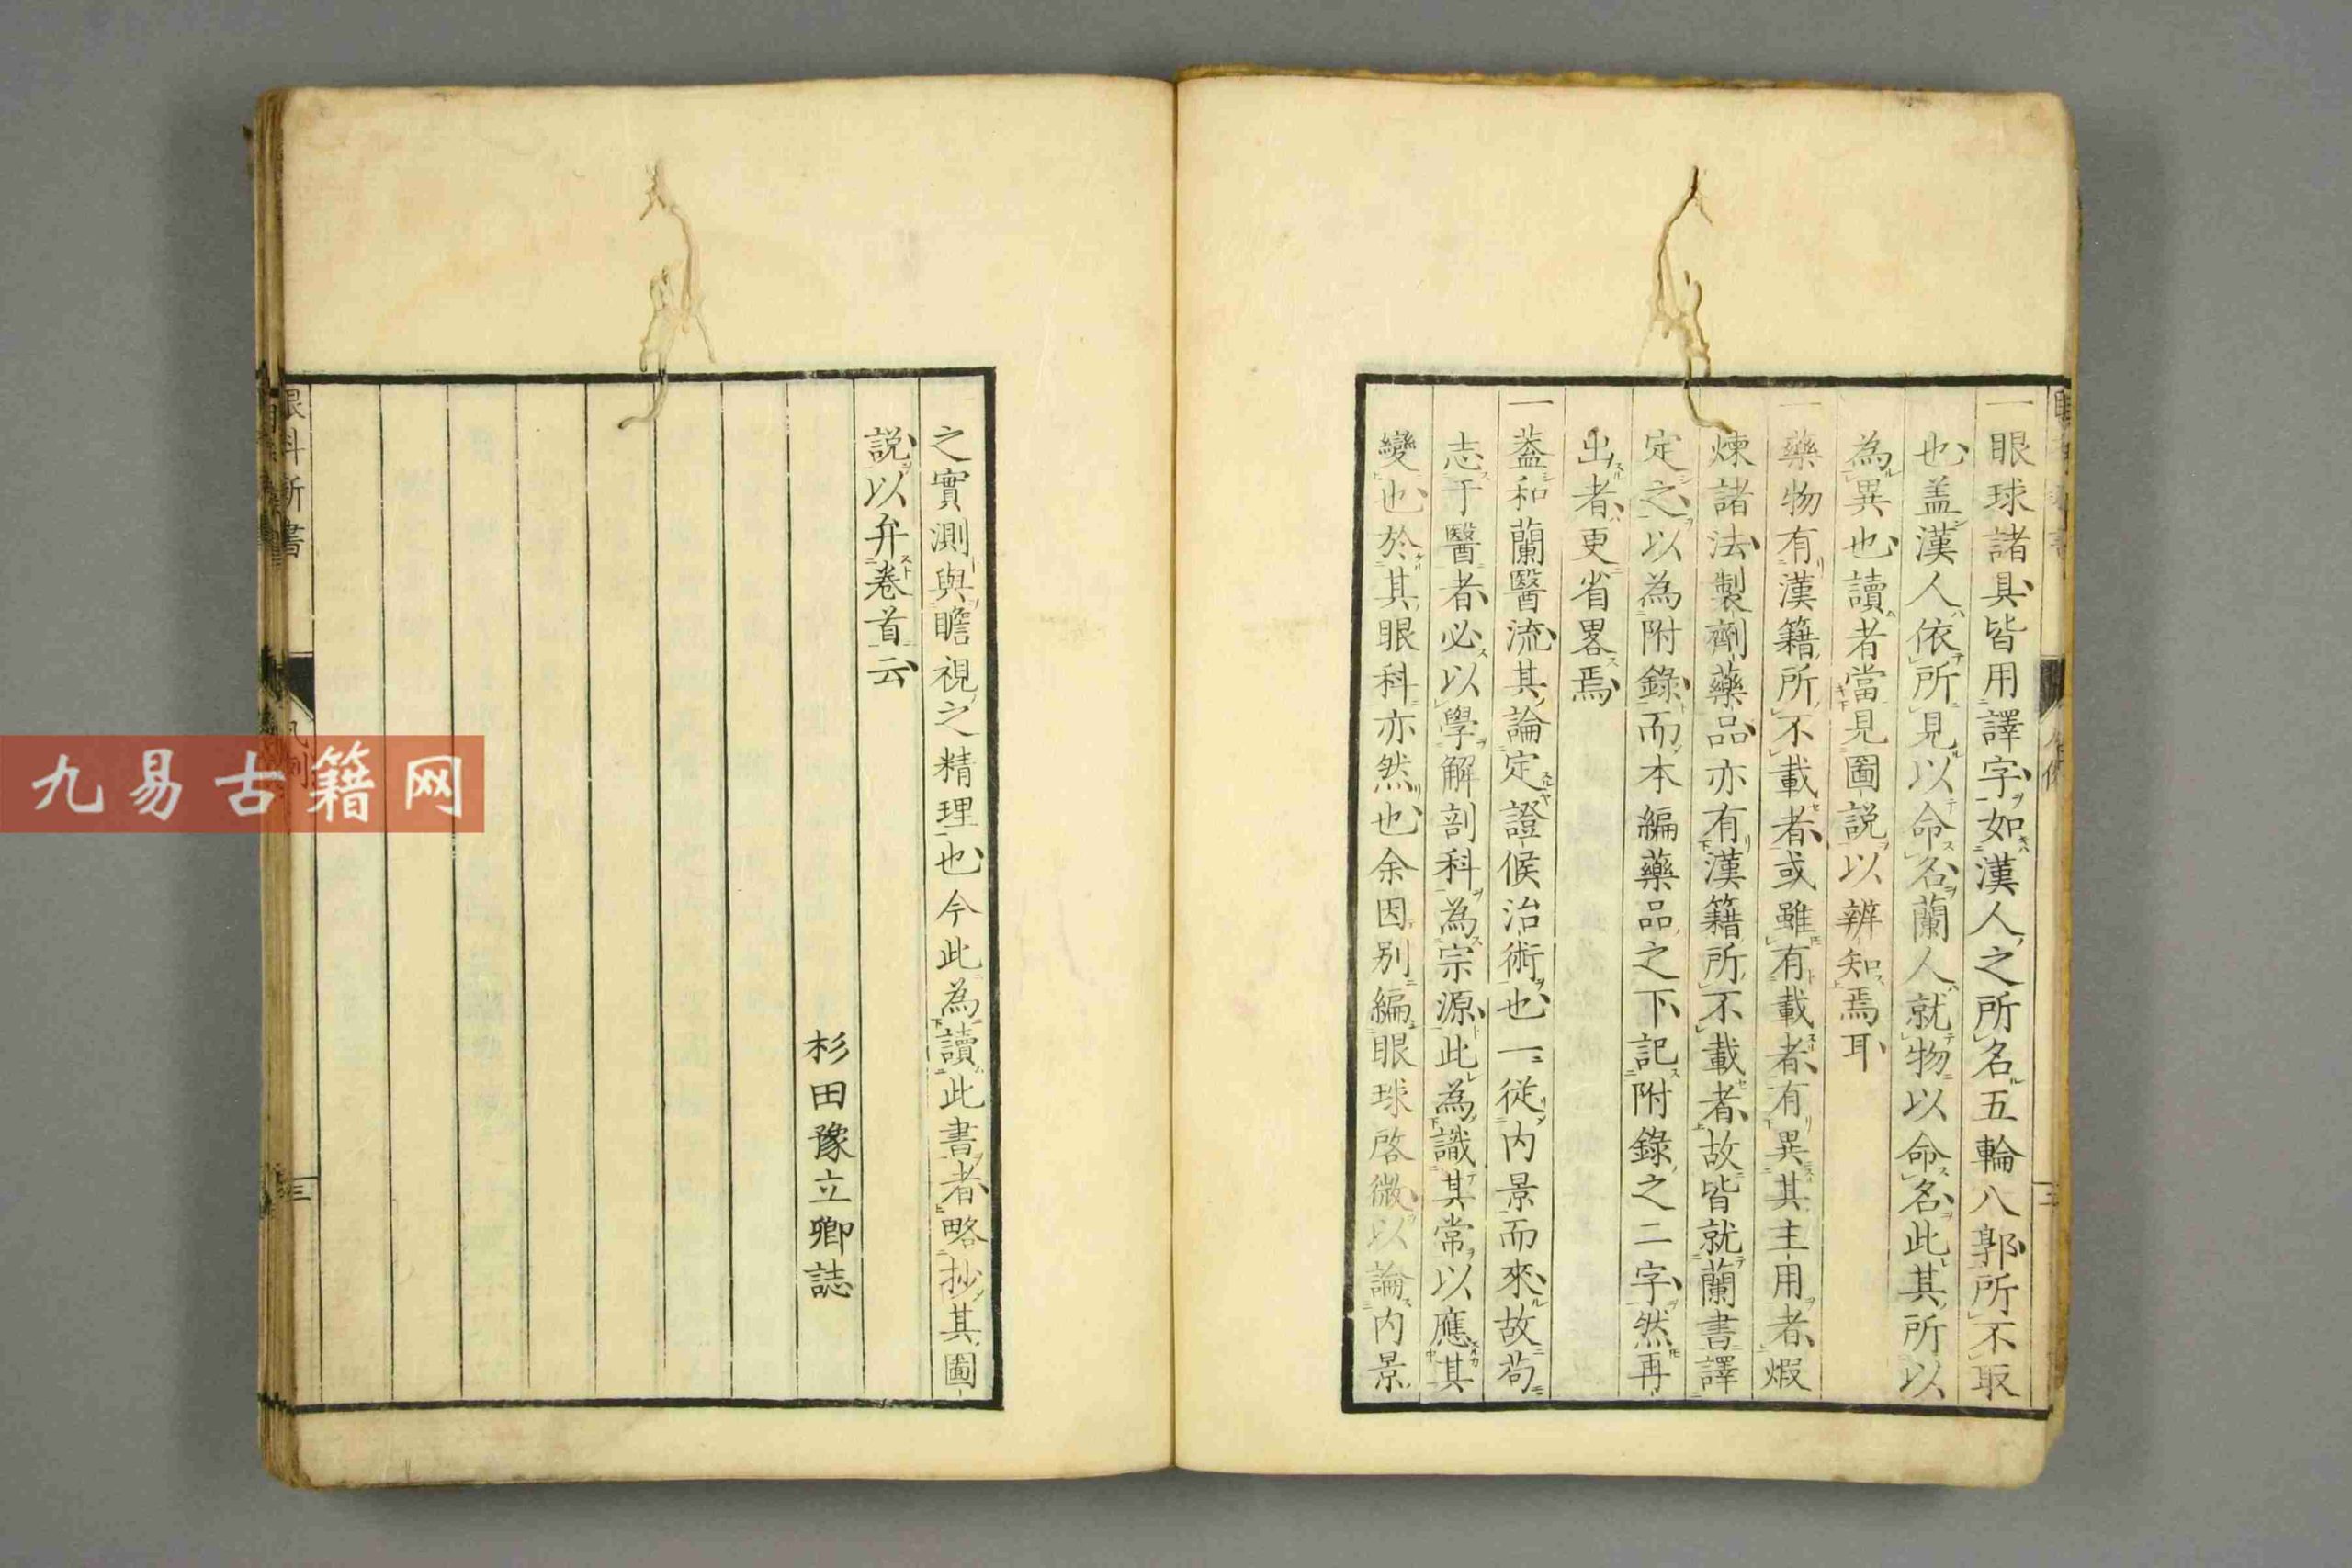 一眼球諸具皆用譯字如漢人之所名五輪八郭所不取
也盖漢人依所見以命名蘭人就物以命名此其所以
為異也讀者當見圖説以辨知焉耳
一藥物有漢籍所不載者或雖有載者有異其主用者煆
煉諸法製劑藥品亦有漢籍所不載者故皆就蘭書譯
定之以為附錄而本編藥品之下記附錄之二字然再
出者更省畧焉
一蓋和蘭醫流其論定證候治術也一從内景而來故苟
志于醫者必以學解剖科為宗源此為識其常以應其
變也於其眼科亦然也余因别編眼球啓微以論内景
之實測與瞻視之精理也今此為讀此書者略抄其圖
説以弁卷首云
杉田豫立卿誌
眼科新書
凡例
三
九易古籍网